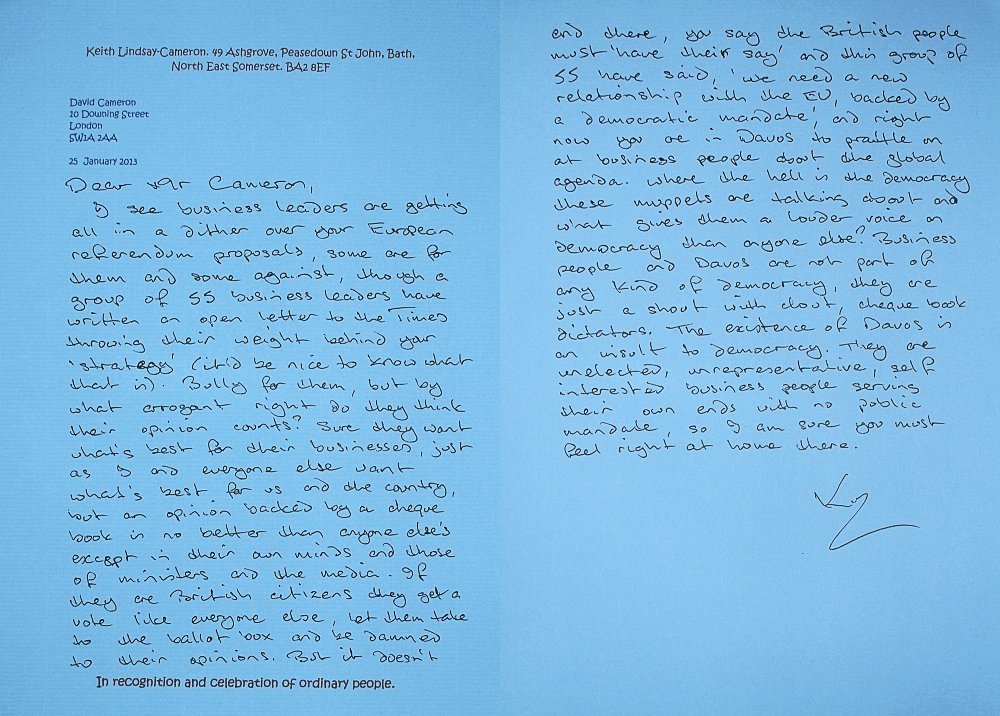 Keith Lindsay-Cameron. 49 Ashgrove, Peasedown St John, Bath,
North East Somerset. BA2 8EF
David Cameron
10 Downing Street
London
SW1A 2AA
25 January 2013
Dear Mr Cameron,
I see business leaders are getting
all in a dither over your European
referendum proposals, some are for
them and some against, though a
group of 55 business leaders have
written an open letter to the Times
throwing their weight behind your
'strategy' (it'd be nice to know what
that is). Bully for them, but by
what arrogant right do they think
their opinion counts? Sure they want
what's best for their businesses, just
as I and everyone else want
what's best for us and the country,
but an opinion backed by a cheque
book is no better than anyone else's
except in their own minds and those
of ministers and the media. If
they are British citizens they get a
vote like everyone else, let them take
to the ballot box and be damned
to their opinions. But it doesn't
In recognition and celebration of ordinary people.
end there, you say the British people
must 'have their say' and this group of
55 have said, 'we need a new
relationship with the EU, backed by
a democratic mandate', and right
now you are in Davos to prattle on
at business people about the global
agenda. Where the hell is the democracy
these muppets are talking about and
what gives them a louder voice on
democracy than anyone else? Business
people and Davos are not part of
any kind of democracy, they are
just a shout with clout, cheque book
dictators. The existence of Davos is
an insult to democracy. They are
unelected, unrepresentative, self
interested business people serving
their own ends with no public
mandate, so I am sure you must
feel right at home there.